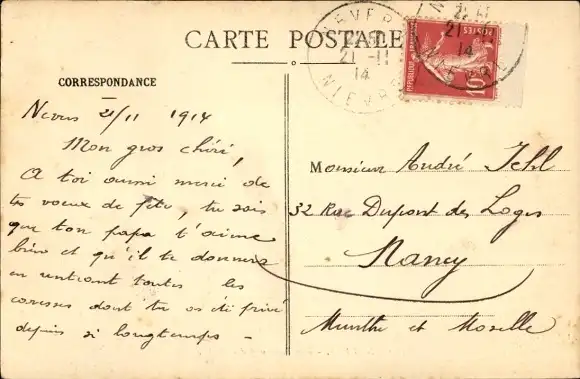 CARTE POSTALE
NEVERS
21-11
14
NIEVRE
NEVERS
21-11
14
NIEVRE
REPUBLIQUE FRANCAISE
POSTES
10
CORRESPONDANCE
Nevers 21/11 1914
Mon gros chéri,
A toi aussi merci de
tes voeux de fête, tu sais
que ton papa t'aime
bien et qu'il te donnera
en rentrant toutes les
caresses dont tu as été privé
depuis si longtemps -
Monsieur André Jehl
32 Rue Dupont des Loges
Nancy
Murthe et Moselle